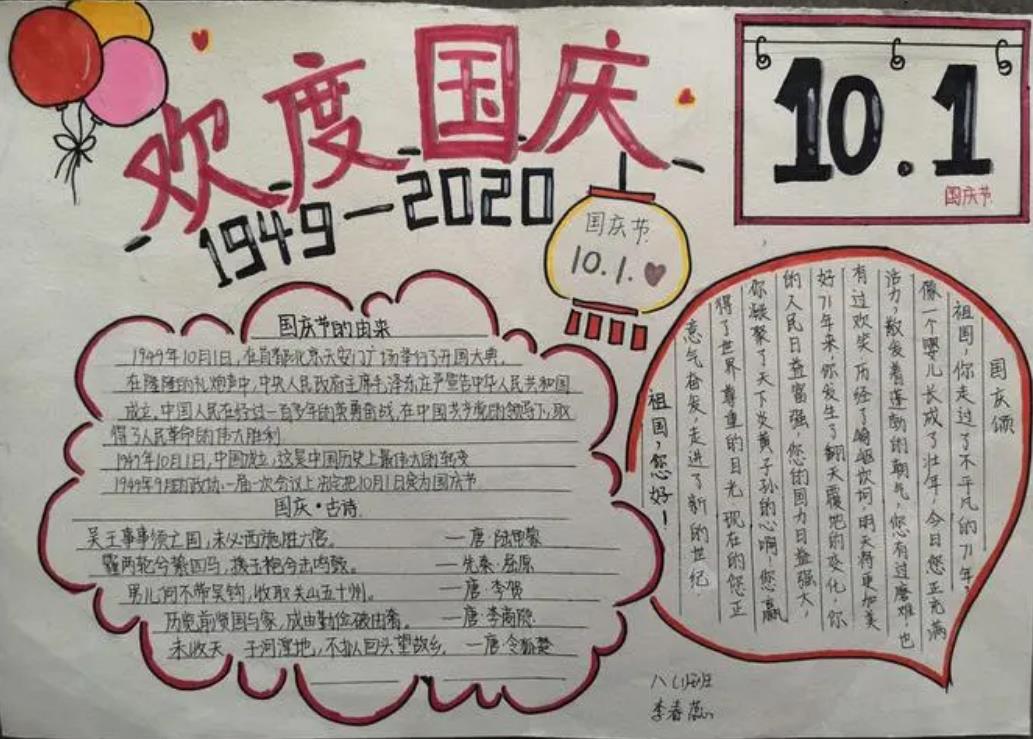 欢度国庆
1949-2020
10.1
国庆节
国庆节
10.1.
国庆节的由来
1949年10月1日,在首都北京天安门广场举行了开国大典,
在隆隆的礼炮声中,中央人民政府主席毛泽东庄严宣告中华人民共和国
成立,中国人民在经过一百多年的英勇奋战,在中国共产党的领导下,取
得了人民革命的伟大胜利
1949年10月1日,中国成立,这是中国历史上最伟大的转变
1949年9月的政协一届一次会议上决定把10月1日定为国庆节.
国庆·古诗
吴王事事须亡国,未必西施胜六宫。 —唐·陆龟蒙
霾两轮兮絷四马,援玉枹兮击鸣鼓。 —先秦·屈原
男儿何不带吴钩,收取关山五十州。 —唐·李贺
历览前贤国与家,成由勤俭破由奢。 —唐·李商隐
未收天子河湟地,不拟回头望故乡。 —唐·令狐楚
国庆颂
祖国,你走过了不平凡的71年,
像一个婴儿长成了壮年,今日您正充满
活力,散发着蓬勃的朝气,您有过磨难,也
有过欢笑,历经了崎岖坎坷,明天将更加美
好71年来,你发生了翻天覆地的变化,你
的人民日益富强,您的国力日益强大,
你凝聚了天下炎黄子孙的心啊,您赢
得了世界尊重的目光,现在的您正
意气奋发,走进了新的世纪
祖国,您好!
八(1)班
李春蕊